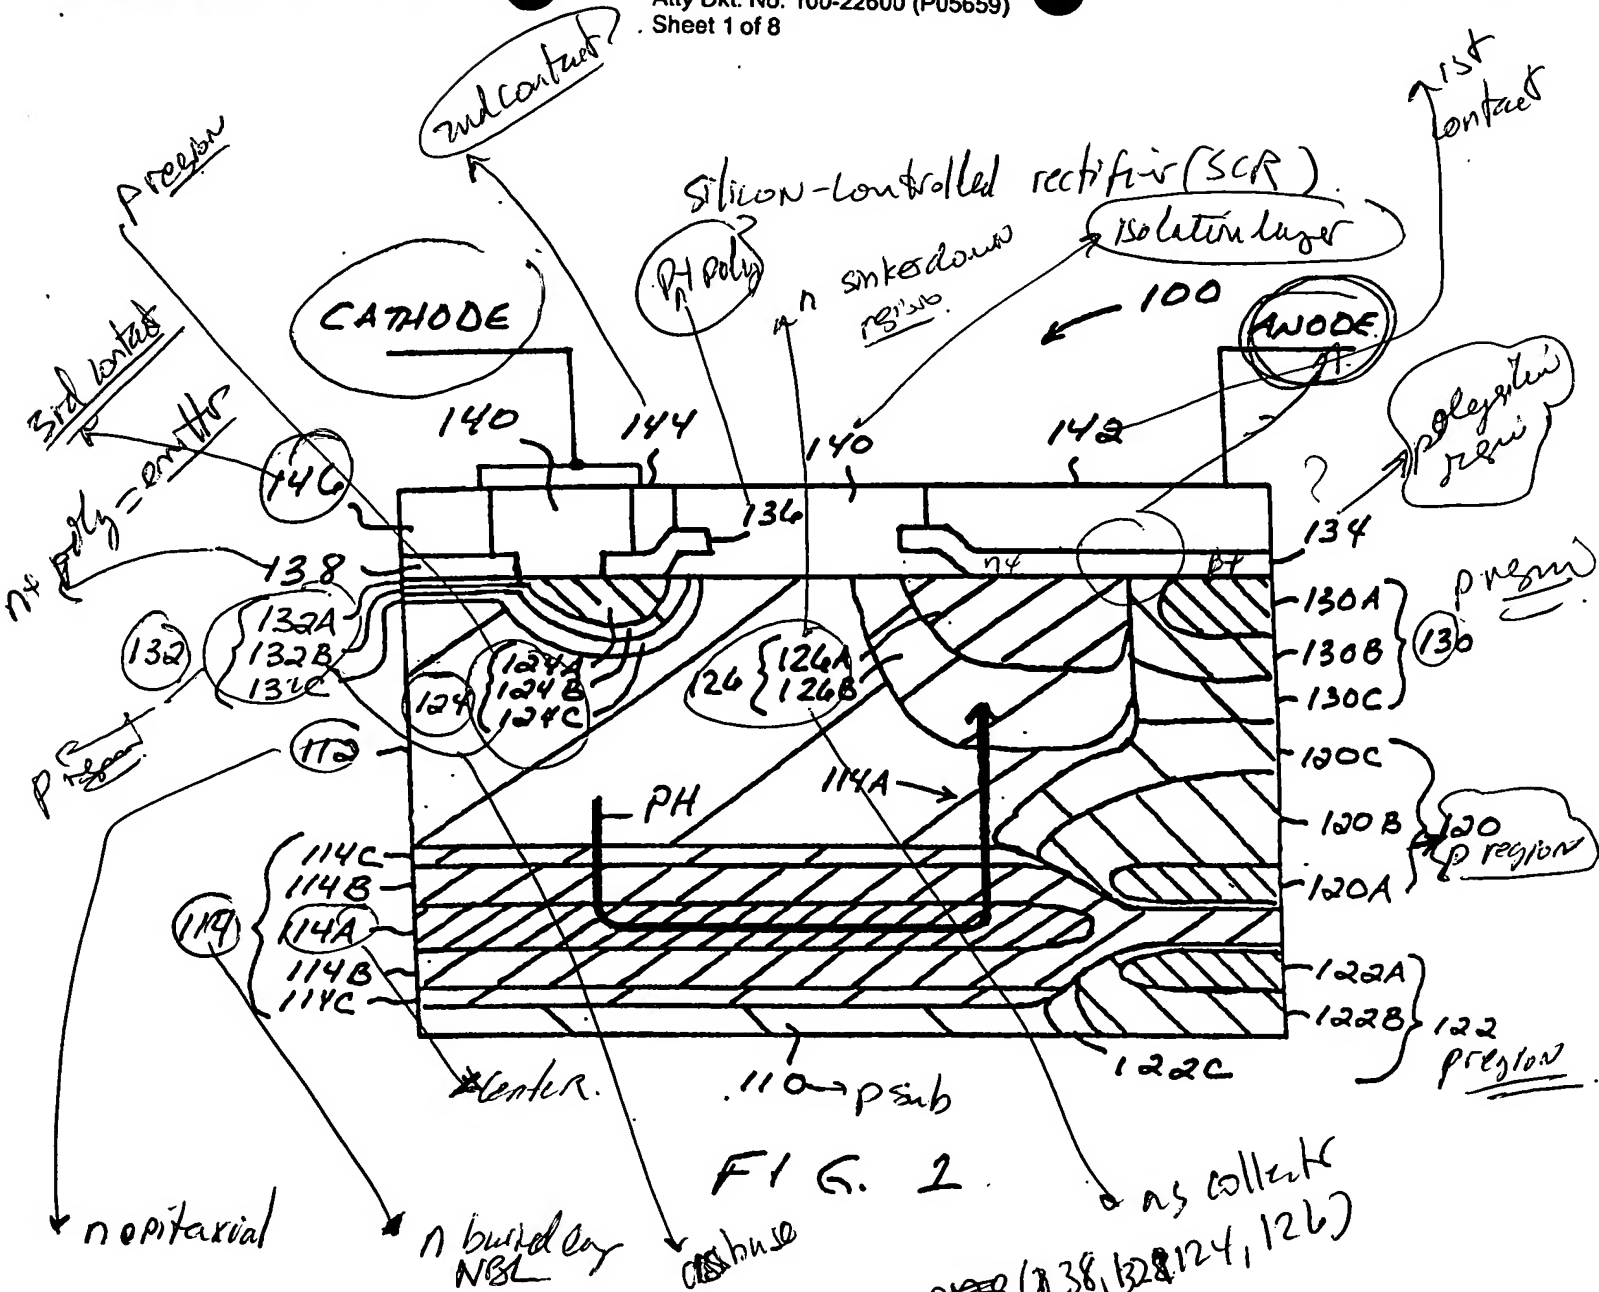 Atty Dkt. No. 100-22600 (P05659)
Sheet 1 of 8
2nd contact
1st contact
p region
silicon-controlled rectifier (SCR)
isolation layer
p+ poly
n sinker down region
100
CATHODE
ANODE
3rd contact
n+ poly = emitter
140
144
140
142
146
136
134
?
n+
p+
138
p region
132A
132B
132C
132
124A
124B
124C
124
126A
126B
126
130A
130B
130C
130
p region
112
PH
114A
120C
120B
120A
120
p region
114C
114B
114A
114B
114C
114
122A
122B
122
p region
122C
center.
110 → p sub
FIG. 1
n epitaxial
n buried lay
NBL
as base
as collector
(138, 132, 124, 126)